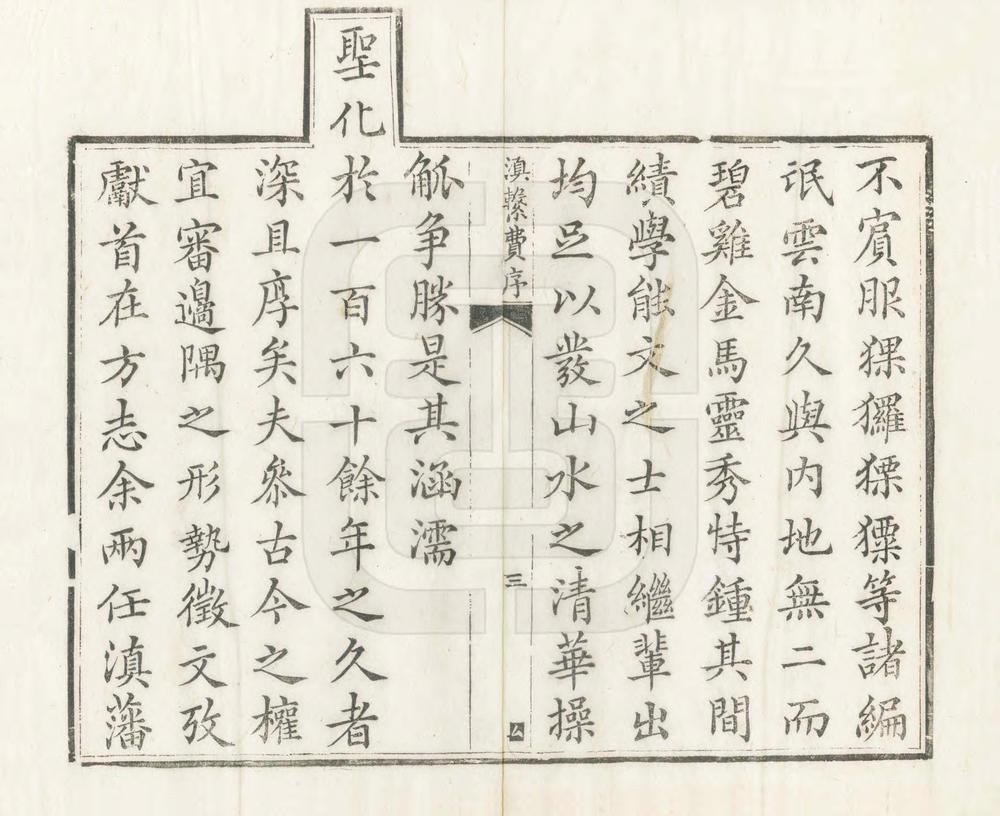 不賓服猓玀㺐獛等諸編
氓雲南久與内地無二而
碧雞金馬靈秀特鍾其間
績學能文之士相繼輩出
均足以發山水之清華操
滇繫費序
三
觚争勝是其涵濡
聖化
於一百六十餘年之久者
深且厚矣夫叅古今之權
宜審邊隅之形勢徵文攷
獻首在方志余兩任滇藩